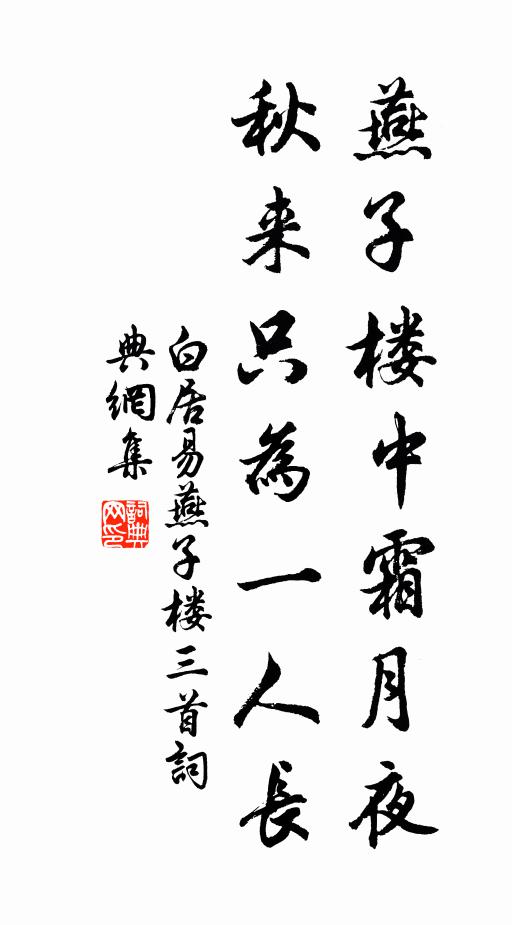 燕子楼中霜月夜
秋来只為一人長
白居易燕子楼三首詞
典網集
詞典
网印